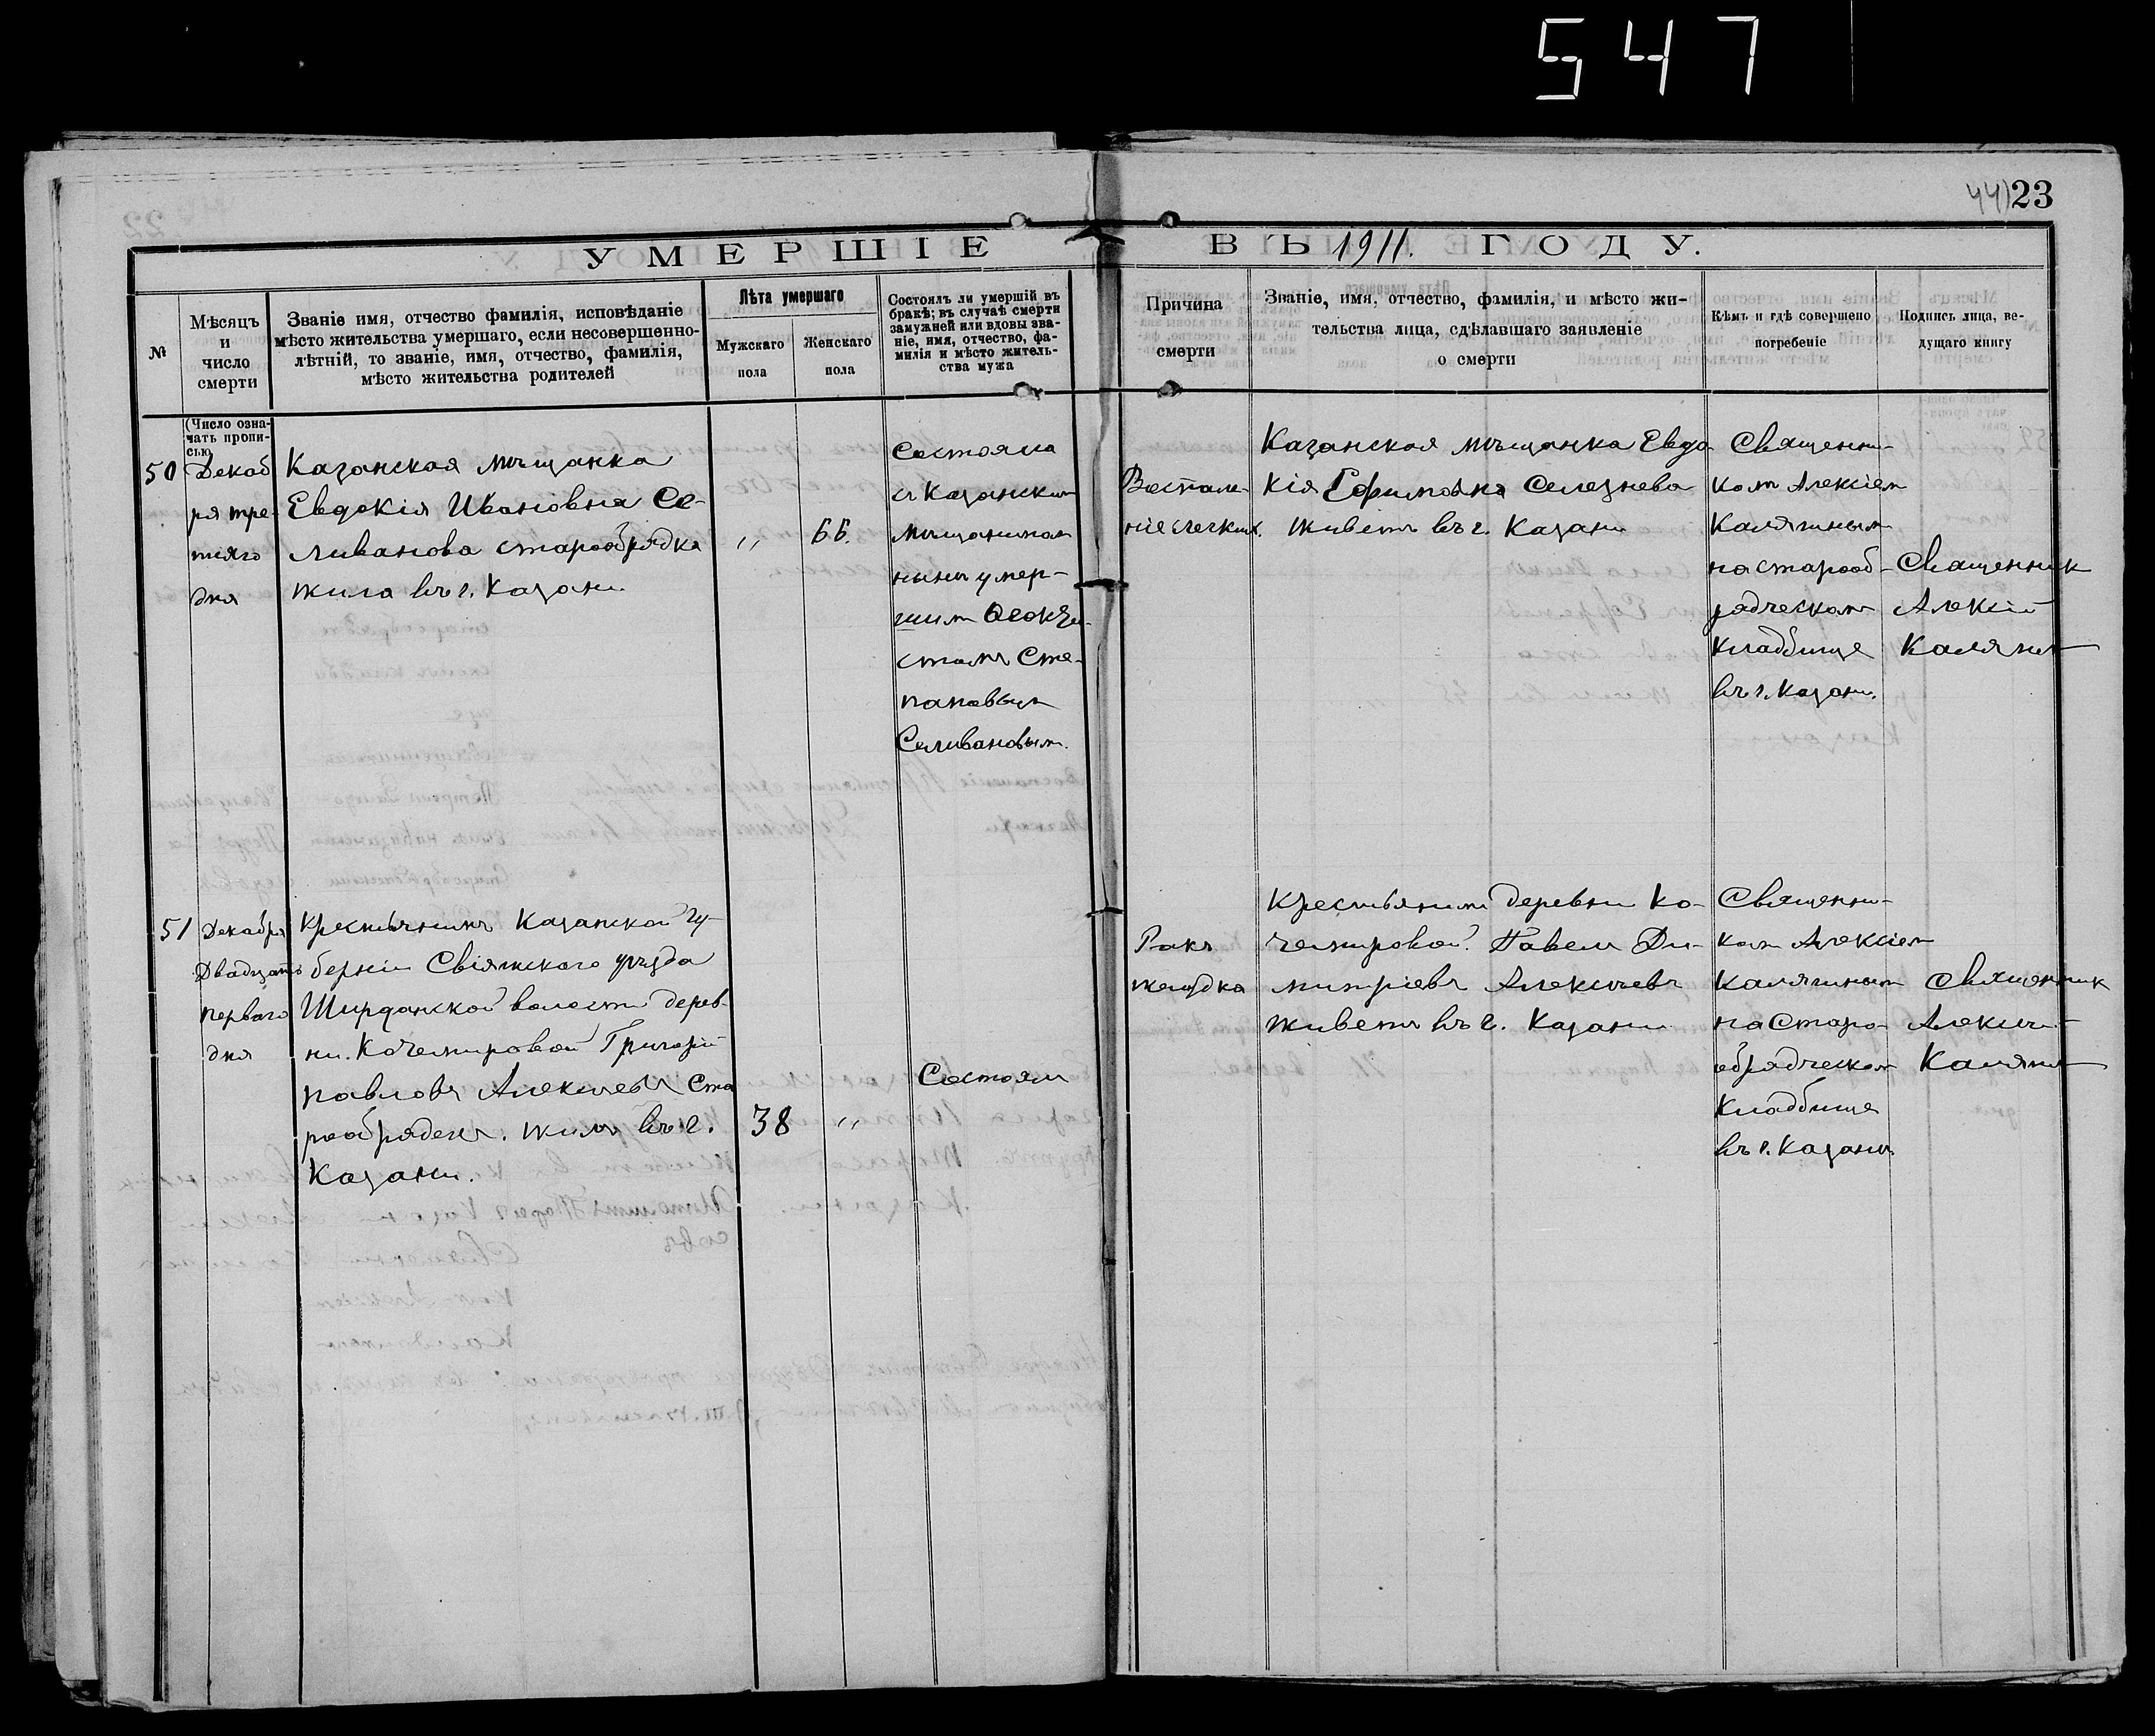 547
44) 23
УМЕРШІЕ ВЪ 1911. ГОДУ.
№
Мѣсяцъ
и
число
смерти
Званіе имя, отчество фамилія, исповѣданіе
мѣсто жительства умершаго, если несовершенно-
лѣтній, то званіе, имя, отчество, фамилія,
мѣсто жительства родителей
Лѣта умершаго
Мужскаго
пола
Женскаго
пола
Состоялъ ли умершій въ
бракѣ; въ случаѣ смерти
замужней или вдовы зва-
ніе, имя, отчество, фа-
милія и мѣсто житель-
ства мужа
Причина
смерти
Званіе, имя, отчество, фамилія, и мѣсто жи-
тельства лица, сдѣлавшаго заявленіе
о смерти
Кѣмъ и гдѣ совершено
погребеніе
Подпись лица, ве-
дущаго книгу
(Число озна-
чать пропи-
сью)
50
Декаб
ря тре-
тьяго
дня
Казанская мѣщанка
Евдокія Ивановна Се-
ливанова старообрядка
жила въ г. Казани
"
66.
Состояла
съ Казанскимъ
мѣщаниномъ
нынѣ умер-
шимъ Феокти-
стомъ Сте-
пановымъ
Селивановымъ.
Воспале-
ніе легкихъ.
Казанская мѣщанка Евдо
кія Ефимовна Селезнева
живетъ въ г. Казани
Священни-
комъ Алексіем
Калягинымъ
на старооб-
рядческомъ
кладбище
въ г. Казани.
Священникъ
Алексій
Калягинъ
51
Декабря
Двадцать
перваго
дня
Крестьянинъ Казанской гу-
берніи Свіяжскаго уѣзда
Ширданской волости дерев-
ни. Кочемировой Григорій
Павловъ Алексѣевъ Ста
рообрядецъ. жилъ въ г.
Казани.
38
"
Состоялъ
Ракъ
желудка
Крестьянинъ деревни Ко-
чемировой. Павелъ Ди-
митріевъ Алексѣевъ
живетъ въ г. Казани
Священни-
комъ Алексіем
Калягинымъ
на Старо-
обрядческом
кладбище
въ г. Казани.
Священникъ
Алексій
Калягинъ